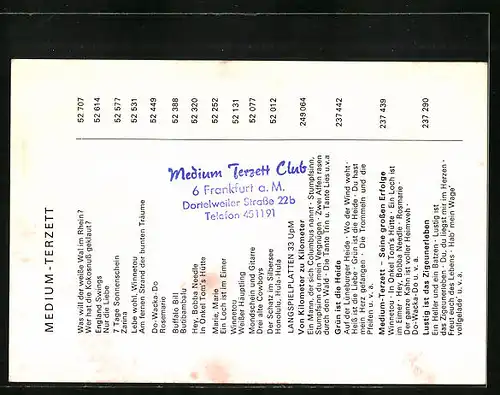 MEDIUM-TERZETT
Was will der weiße Wal im Rhein?
Wer hat die Kokosnuß geklaut? 52 707
England Swings
Nur die Liebe 52 614
7 Tage Sonnenschein
Zarina 52 577
Lebe wohl, Winnetou
Am fernen Strand der bunten Träume 52 531
Do-Wacka-Do
Rosemarie 52 449
Buffalo Bill
Budibambalu 52 388
Hey, Bobba Needle
In Onkel Tom's Hütte 52 320
Marie, Marie
Ein Loch ist im Eimer 52 252
Winnetou
Weißer Häuptling 52 131
Mondschein und Gitarre
Drei alte Cowboys 52 077
Der Schatz im Silbersee
Honolulu, Hula-Hula 52 012
LANGSPIELPLATTEN 33 UpM
Von Kilometer zu Kilometer 249 064
Ein Mann, der sich Columbus nannt · Stumpfsinn,
Stumpfsinn du mein Vergnügen · Zwei Affen rasen
durch den Wald · Die Tante Trin u. Tante Lies u.v.a
Grün ist die Heide 237 442
Auf der Lüneburger Heide · Wo der Wind weht ·
Heiß ist die Liebe · Grün ist die Heide · Du hast
mein Herz gefangen · Die Trommeln und die
Pfeifen u. v. a.
Medium-Terzett - Seine großen Erfolge 237 439
Winnetou · In Onkel Tom's Hütte · Ein Loch ist
im Eimer · Hey, Bobba Needle · Rosmarie ·
Der ganze Kahn ist voller Heimweh ·
Do-Wacka-Do u. v. a.
Lustig ist das Zigeunerleben 237 290
Ein Heller und ein Batzen · Lustig ist
das Zigeunerleben · Du, du liegst mir im Herzen ·
Freut euch des Lebens · Hab' mein Wage'
vollgelade' u. v. a.
Medium Terzett Club
6 Frankfurt a. M.
Dortelweiler Straße 22b
Telefon 451191